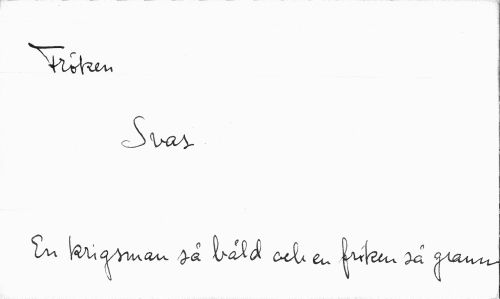 Fröken
Svas
En krigsman så båld och en fröken så grann